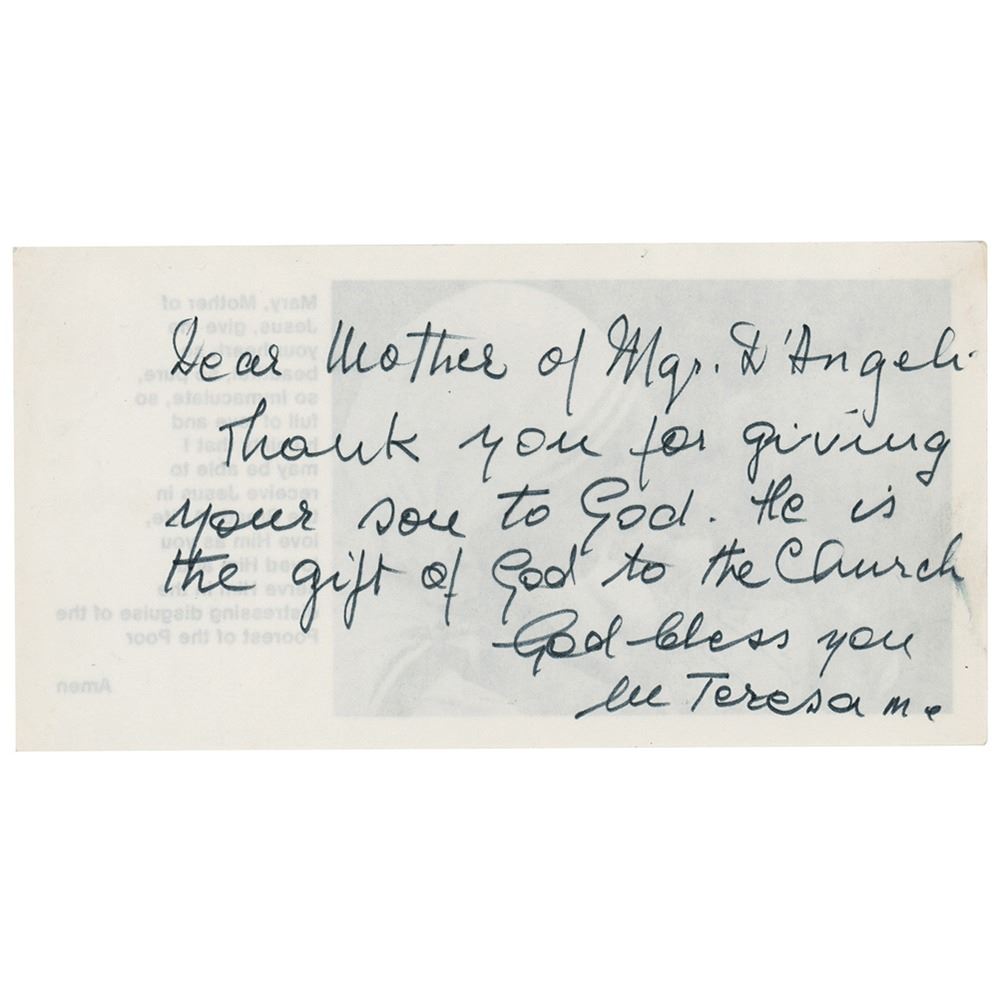 Dear Mother of Mgr. D'Angeli
Thank you for giving
your son to God. He is
the gift of God to the Church
God bless you
M Teresa mc
Mary, Mother of
Jesus, give me
your heart, so
pure,
so immaculate, so
full of love and
that I
may be able to
receive Jesus in
love Him as you
Him
serve Him in the
distressing disguise of the
Poorest of the Poor
Amen